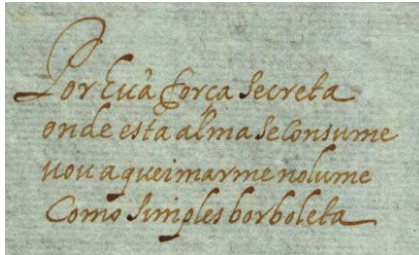 Por hũa força secreta
onde esta alma se consume
vou a queimarme no lume
Como simples borboleta